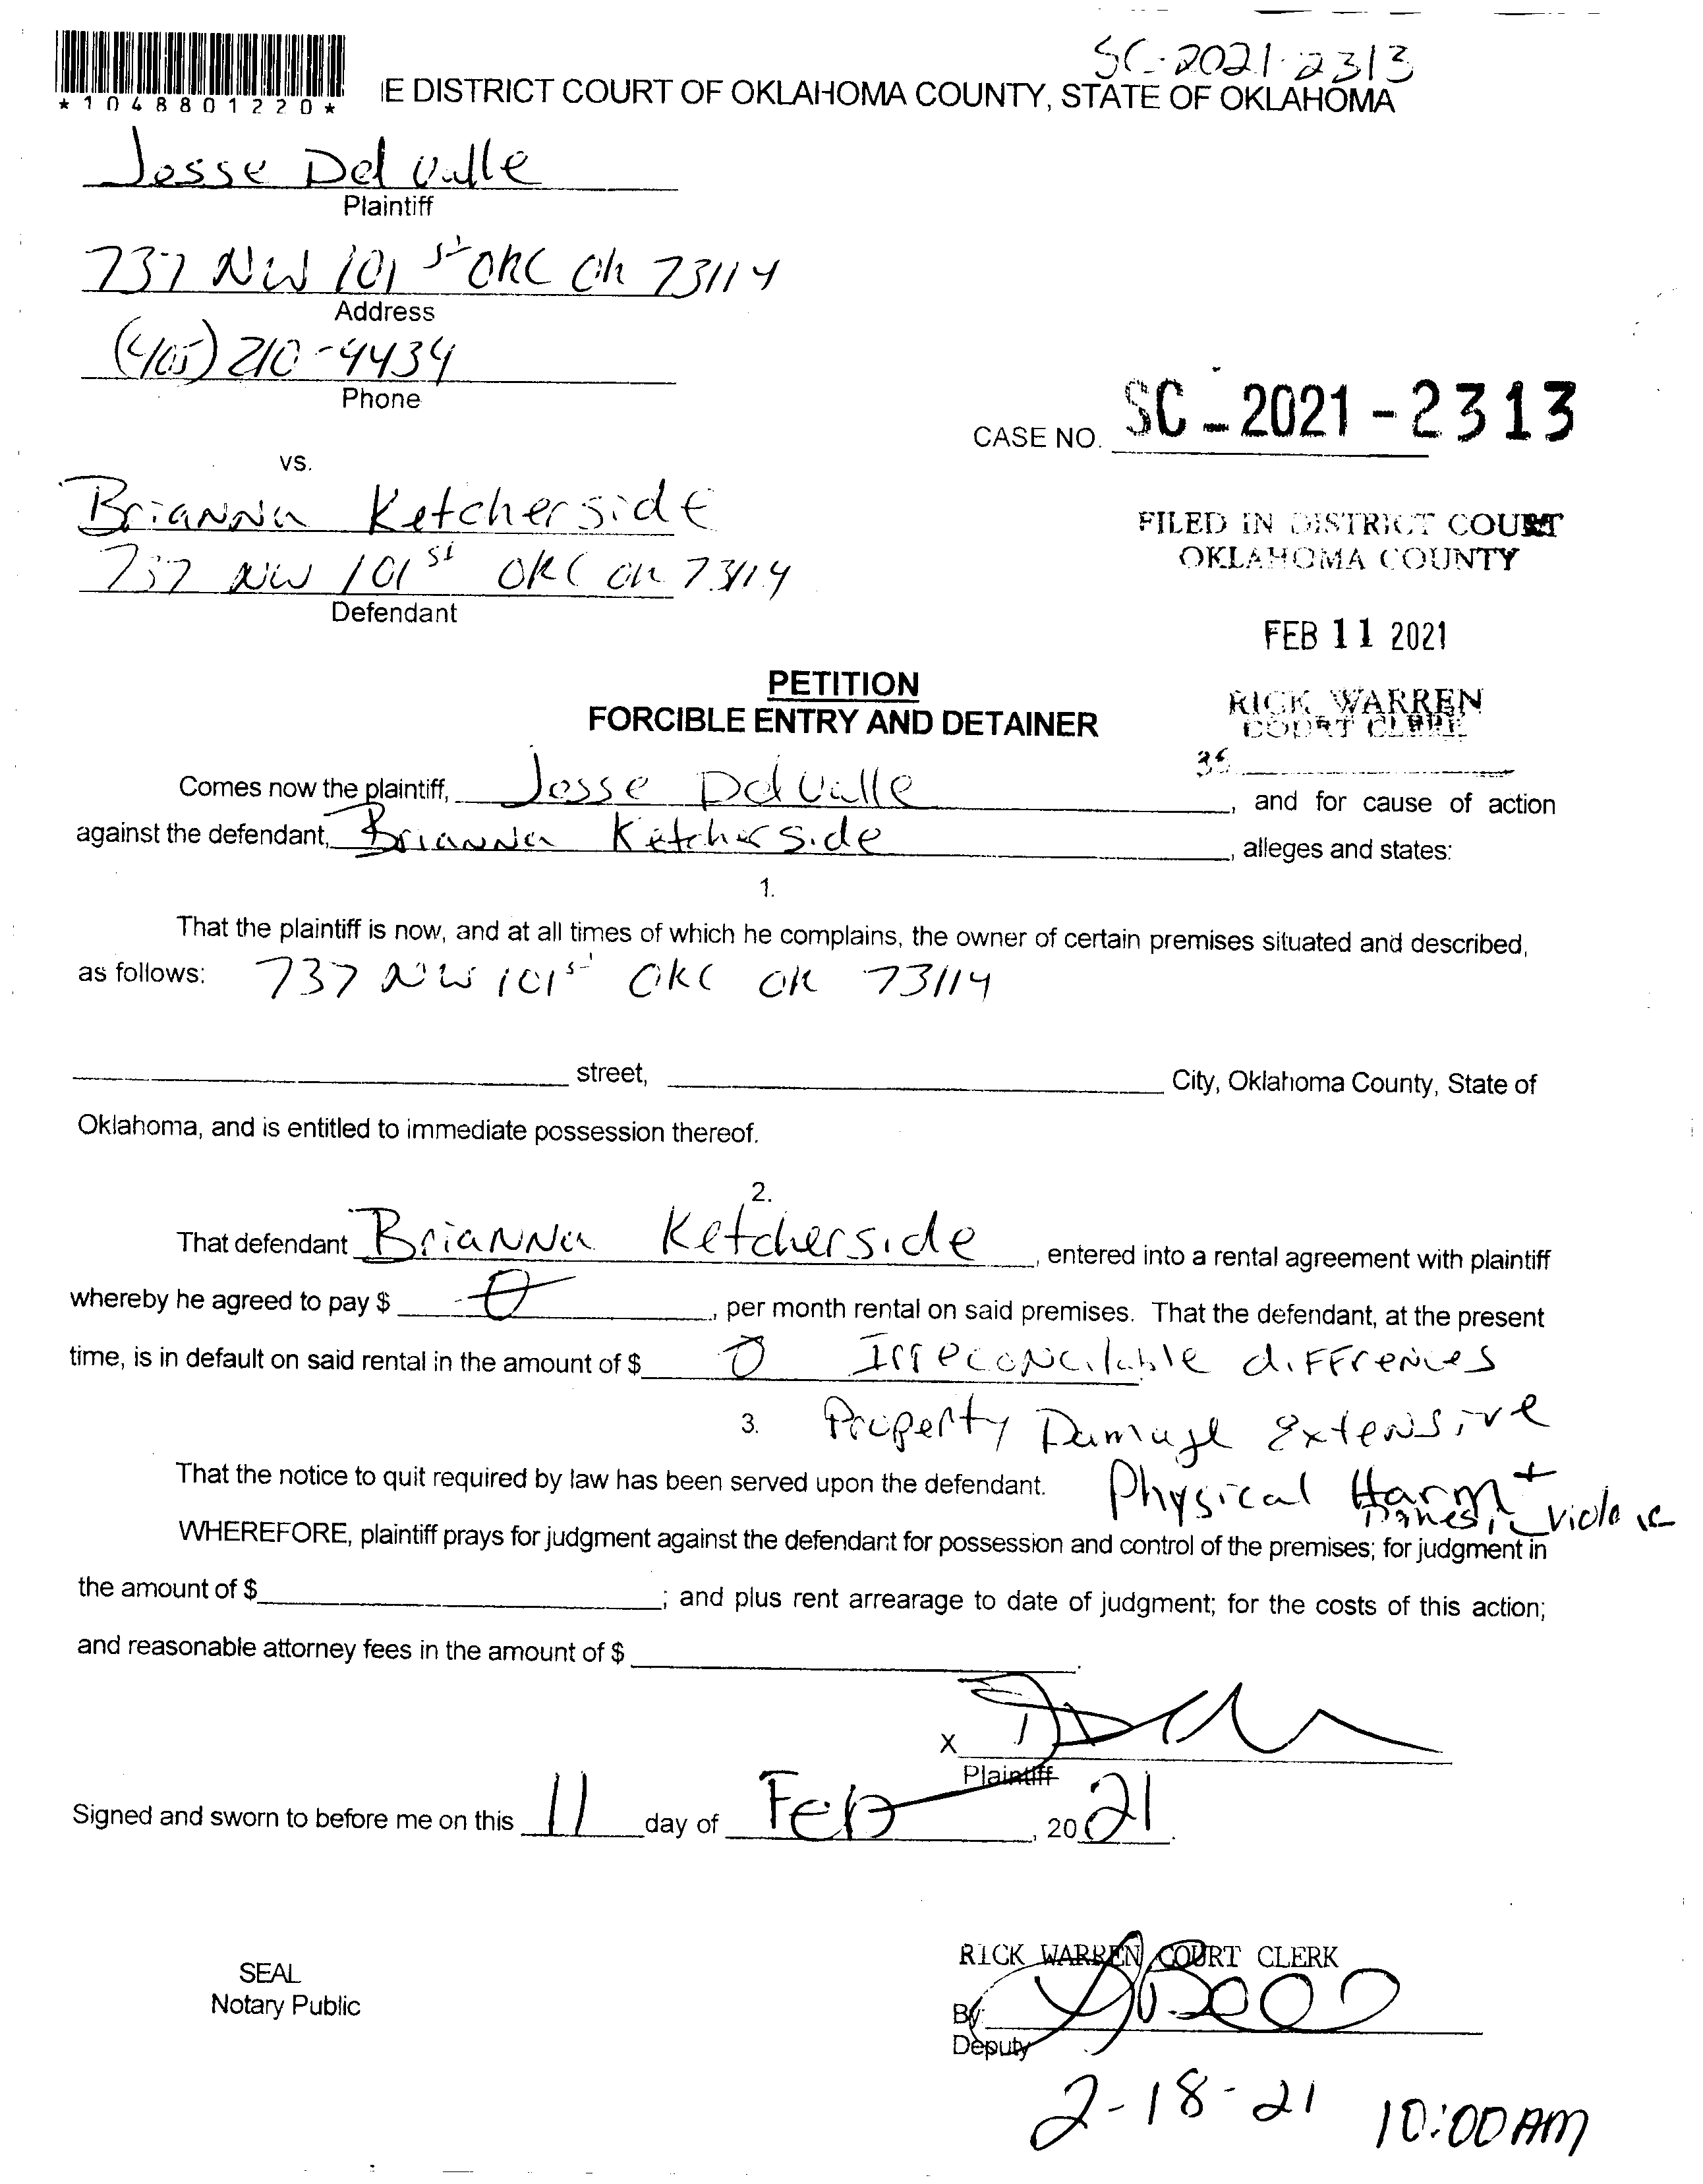 SC-2021-2313
*1048801220*
IE DISTRICT COURT OF OKLAHOMA COUNTY, STATE OF OKLAHOMA
Jesse Del Valle
Plaintiff
737 NW 101st OKC Ok 73114
Address
(405) 210-4434
Phone
CASE NO. SC-2021-2313
vs.
Brianna Ketcherside
737 NW 101st OKC OK 73114
Defendant
FILED IN DISTRICT COURT
OKLAHOMA COUNTY
FEB 11 2021
RICK WARREN
COURT CLERK
PETITION
FORCIBLE ENTRY AND DETAINER
Comes now the plaintiff, Jesse Del Valle, and for cause of action
against the defendant, Brianna Ketcherside, alleges and states:
1.
That the plaintiff is now, and at all times of which he complains, the owner of certain premises situated and described,
as follows: 737 NW 101st OKC OK 73114
street, City, Oklahoma County, State of
Oklahoma, and is entitled to immediate possession thereof.
2.
That defendant Brianna Ketcherside, entered into a rental agreement with plaintiff
whereby he agreed to pay $ 0, per month rental on said premises. That the defendant, at the present
time, is in default on said rental in the amount of $ 0 Irreconcilable diffrences
3. Property Damage Extensive
That the notice to quit required by law has been served upon the defendant. Physical Harm +
Domestic Violence
WHEREFORE, plaintiff prays for judgment against the defendant for possession and control of the premises; for judgment in
the amount of $; and plus rent arrearage to date of judgment; for the costs of this action;
and reasonable attorney fees in the amount of $.
X
Plaintiff
Signed and sworn to before me on this 11 day of Feb, 2021.
SEAL
Notary Public
RICK WARREN COURT CLERK
By:
Deputy
2-18-21 10:00 AM